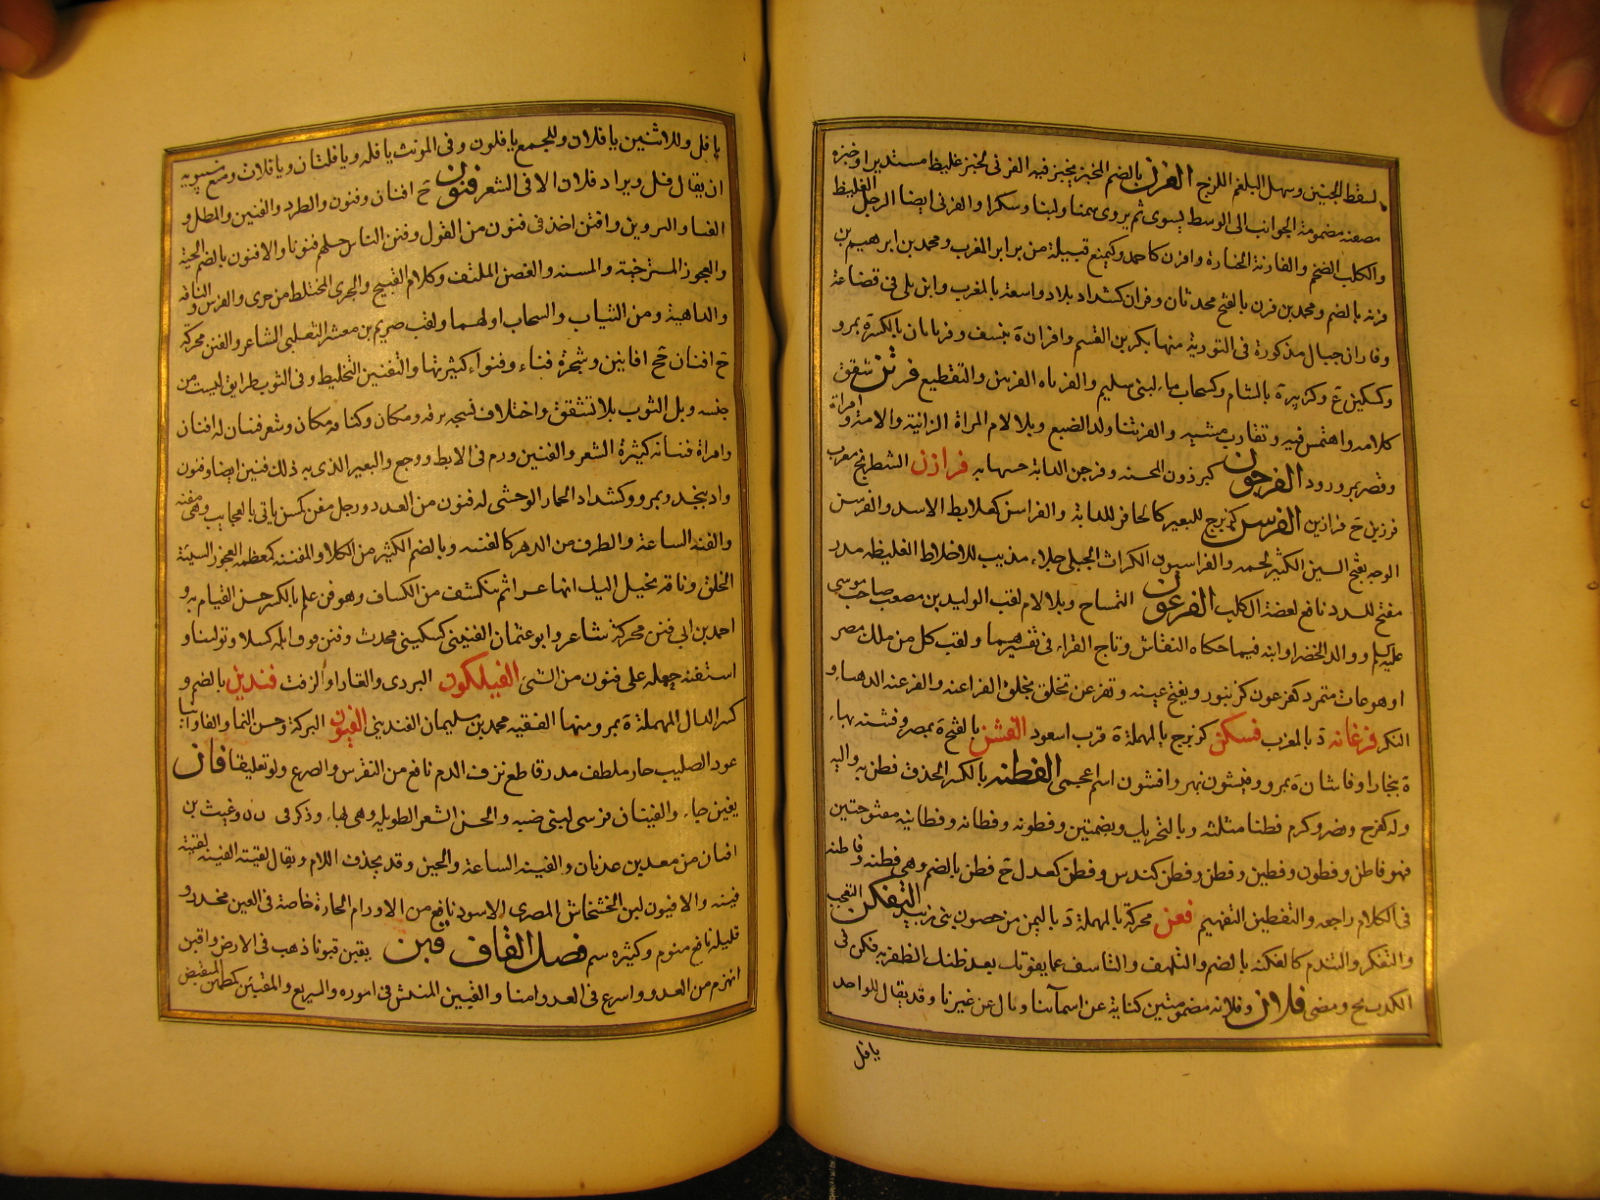 لسقط الجنين وسهل البلغم اللزج الفرن بالضم المخبز يخبز فيه الفرنى لخبز غليظ مستدير او خبزة
مصعنبة مضمومة الجوانب الى الوسط يسوى ثم يروى سمنا ولبنا وسكرا والفرنى ايضا الرجل الغليظ
والكلب الضخم والفارنة الخبازة وافرن كاحمد وكيمنع قبيلة من برابر المغرب ومحمد بن ابرهيم بن
فرنة بالضم ومحمد بن فرن بالفتح محدثان وفران كشداد بلاد واسعة بالمغرب وابن بلى فى قضاعة
وفاران جبال مذكورة فى التورية منها بكر بن القسم وافران ة بنسف وفريانان بالكسرة بمرو
وكسكين ع وكزبيرة بالشام وكسحاب ماء لبنى سليم والفرناه الفرس والتقطيع فرتن شقق
كلامه واهتمس فيه وتقارب مشيه والفرتنا ولد الضبع وبلا لام المراة الزانية والامة وامراة
وقصر بمرورود الفرجون كبرذون المحسة وفرجن الدابة حسها به فرازن الشطرنج معرب
فرزين ج فرازين الفرسن كزبرج للبعير كالحافر للدابة والفراسن كعلابط الاسد والفرسن
الوجه بفتح السين الكثير لحمه والفراسيون الكراث الجبلى جلاء مذيب للاخلاط الغليظة مدر
مفتح للسدد نافع لعضة الكلب الفرعون التمساح وبلا لام لقب الوليد بن مصعب صاحب موسى
عليه السلم ووالد الخضر او ابنه فيما حكاه النقاش وتاج القراء فى تفسيرهما ولقب كل من ملك مصر
او هو عات متمرد كفرعون كزنبور ويفتح عينه وتفرعن تخلق بخلق الفراعنة والفرعنة الدهاء و
النكر فرغانة د بالمغرب فسكن كزبرج بالمهملة ة قرب اسعود الفشن بالفتح ة بمصر وفشنة بهاء
ة بخارا وفاشان ة بمرو وفيشون نهر وافشون اسم اعجمى الفطنة بالكسر الحذق فطن به واليه
وله كفرح ونصر وكرم فطنا مثلثة وبالتحريك وبضمتين وفطونة وفطانة وفطانية مفتوحتين
فهو فاطن وفطون وفطين وفطن وفطن كندس وفطن كعدل ج فطن بالضم وهى فطنة وفاطنة
فى الكلام راجعه والتفطين التفهيم فعن محركة بالمهملة د باليمن من حصون بنى زبيد التفكن التعجب
والتفكر والتندم كالفكنة بالضم والتلهف والتاسف عما يفوتك بعد ظنك الظفر به فكن فى
الكذب لج ومضى فلان وفلانة مضمومتين كناية عن اسمآئنا وبال عن غيرنا وقد يقال للواحد
يا فل
يا فل وللاثنين يا فلان وللجمع يا فلون وفى المونث يا فلة ويا فلتان ويا فلات ومنع سيبويه
ان يقال فل ويراد فلان الا فى الشعر فنون ج افنان وفنون والطرد والغبن والمطل و
العنا والتزيين وافتن اخذ فى فنون من القول وفنن الناس جعلهم فنونا والافنون بالضم الحية
والعجوز المسترخية والمسنة والغصن الملتف وكلام القبيح والجرى المختلط من جرى والفرس والناقة
والداهية ومن الشباب والسحاب اولهما ولقب صريم بن معشر التغلبى الشاعر والفنن محركة
ج افنان جج افانين وشجرة فناء وفنواء كثيرتها والتفنين التخليط وفى الثوب طرايق ليست من
جنسه وبلى الثوب بلا تشقق واختلاف نسجه برقة ومكان وكثافة مكان وشعر فنان له افنان
وامراة فنانة كثيرة الشعر والفنين ورم فى الابط ووجع والبعير الذى به ذلك فنين ايضا ومفنون
واد بنجد وبمرو وكشداد الحمار الوحشى له فنون من العدد ورجل مفن كمسن ياتى بالعجايب وهى مفنة
والفنة الساعة والطرف من الدهر كالفنية وبالضم الكثير من الكلا والمفننة كمعظمة العجوز السيئة
الخلق وناقة يخيل اليك انها عشراء ثم تنكشف من الكساف وهو فن علم بالكسر حسن القيام به و
احمد بن ابى فنن محركة شاعر وابو عثمان الفنينى كسكينى محدث وفنن فرق ابله كسلا وتوانيا و
استفنه حمله على فنون من الشىء الفيلكون البردى والقار او الزفت فندين بالضم و
كسر الدال المهملة ة بمرو منها الفقيه محمد بن سليمان الفندينى الفيون البركة وحسن النما والفاوانيا
عود الصليب حار ملطف مدر قاطع نزف الدم نافع من النقرس والصرع ولو تعليقا فان
يفين جاء والفينان فرس لبنى ضبة والحسن الشعر الطويله وهى بهاء وذكر فى ن ن وغيث بن
افنان من معد بن عدنان والفينة الساعة والحين وقد تحذف اللام ويقال لقيته الفينة لقيته
فينة والافيون لبن الخشخاش المصرى الاسود نافع من الاورام الحارة خاصة فى العين مخدر و
قليله نافع منوم وكثيره سم فصل القاف قبن يقبن قبونا ذهب فى الارض واقبن
انهزم من العدو واسرع فى العدو امنا والقبين المنكمش فى اموره والسريع والمقبئن كمطمئن المنقبض